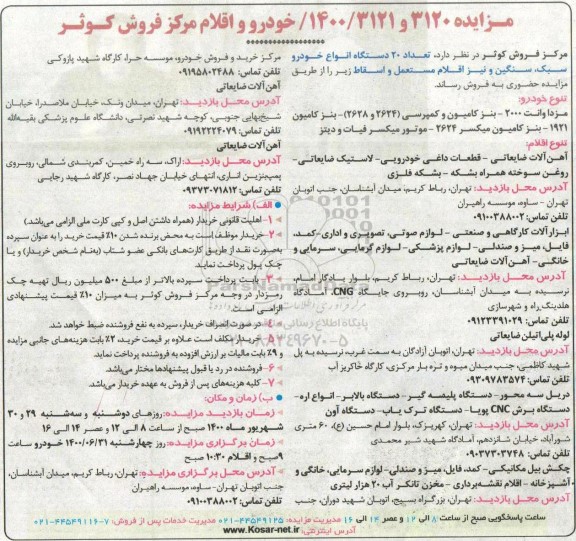 مزایده ۳۱۲۰ و ۱۴۰۰/۳۱۲۱/ خودرو و اقلام مرکز فروش کوثر
مرکز فروش کوثر در نظر دارد، تعداد ۲۰ دستگاه انواع خودرو
سبک، سنگین و نیز اقلام مستعمل و اسقاط زیر را از طریق
مزایده حضوری به فروش رساند.
تنوع خودرو:
مزدا وانت ۲۰۰۰ - بنز کامیون و کمپرسی (۲۶۲۴ و ۲۶۲۸)- بنز کامیون
۱۹۲۱ - بنز کامیون میکسر ۲۶۲۴ - موتور میکسر فیات و دیتز
تنوع اقلام:
آهن آلات ضایعاتی - قطعات داغی خودرویی- لاستیک ضایعاتی-
روغن سوخته همراه بشکه - بشکه فلزی
آدرس محل بازدید: تهران، رباط کریم، میدان آبشناسان، جنب اتوبان
تهران - ساوه، موسسه راهیران
تلفن تماس: ۰۹۱۰۰۳۸۸۰۰۲
ابزار آلات کارگاهی و صنعتی - لوازم صوتی، تصویری و اداری-کمد،
فایل، میز و صندلی- لوازم پزشکی- لوازم گرمایی، سرمایی و
خانگی- آهن آلات ضایعاتی
آدرس محل بازدید: تهران، رباط کریم، بلوار یادگار امام،
نرسیده به میدان آبشناسان، روبروی جایگاه CNG، آمادگاه
هلدینگ راه و شهرسازی
تلفن تماس: ۰۹۱۲۳۳۹۱۰۲۹
لوله پلی اتیلن ضایعاتی
آدرس محل بازدید: تهران، اتوبان آزادگان به سمت غرب، نرسیده به پل
شهید کاظمی، جنب میدان میوه و تره بار مرکزی، کارگاه خاکریز آب
تلفن تماس: ۰۹۳۰۹۷۸۳۵۷۴
دریل سه محور- دستگاه پلیسه گیر- دستگاه بالابر- انواع اره-
دستگاه برش CNC پویا- دستگاه ترک یاب- دستگاه آون
آدرس محل بازدید: تهران، کهریزک، بلوار امام حسین (ع)، ۶۰ متری
شورآباد، خیابان شانزدهم، آمادگاه شهید شیر محمدی
تلفن تماس: ۰۹۰۳۷۳۰۳۷۴۸
چکش بیل مکانیکی- کمد، فایل، میز و صندلی- لوازم سرمایی، خانگی و
آشپزخانه - اقلام نقشه برداری - مخزن تانکر آب ۲۰ هزار لیتری
آدرس محل بازدید: تهران، بزرگراه بسیج، اتوبان شهید دوران، جنب
مرکز خرید و فروش خودرو، موسسه حرا، کارگاه شهید پازوکی
تلفن تماس: ۰۹۱۹۵۸۰۲۴۸۸
آهن آلات ضایعاتی
آدرس محل بازدید: تهران، میدان ونک، خیابان ملاصدرا، خیابان
شیخ بهایی جنوبی، کوچه شهید نصرتی، دانشگاه علوم پزشکی بقیه الله
تلفن تماس: ۰۹۱۹۲۲۲۴۰۷۹
آهن آلات ضایعاتی
آدرس محل بازدید: اراک، سه راه خمین، کمربندی شمالی، روبروی
پمپ بنزین انباری، انتهای خیابان جهاد نصر، کارگاه شهید رجایی
تلفن تماس: ۰۹۳۷۳۰۷۱۸۱۲
الف) شرایط مزایده:
۱- اهلیت قانونی خریدار (همراه داشتن اصل و کپی کارت ملی الزامی می باشد)
۲- خریدار موظف است به محض برنده شدن ۱۰٪ قیمت خرید را به عنوان سپرده
بصورت نقد از طریق کارت های بانکی عضو شتاب (بنام شخص خریدار) و یا
چک پول پرداخت نماید.
۳- بابت پرداخت سپرده بالاتر از مبلغ ۵۰۰ میلیون ریال تهیه چک
رمزدار در وجه مرکز فروش کوثر به میزان ۱۰٪ قیمت پیشنهادی
الزامی است.
۴- در صورت انصراف خریدار، سپرده به نفع فروشنده ضبط خواهد شد.
۵- خریدار مکلف است علاوه بر قیمت خرید، ۲٪ بابت هزینه های جانبی مزایده
و ۹٪ بابت مالیات بر ارزش افزوده به فروشنده پرداخت نماید.
۶- فروشنده در رد یا قبول پیشنهادها مختار می باشد.
۷- کلیه هزینه های پس از فروش به عهده خریدار می باشد.
ب) زمان و مکان:
زمان بازدید مزایده: روزهای دوشنبه و سه شنبه ۲۹ و ۳۰
شهریور ماه ۱۴۰۰ صبح از ساعت ۸ الی ۱۲ و عصر ۱۴ الی ۱۶
زمان برگزاری مزایده: روز چهارشنبه ۱۴۰۰/۰۶/۳۱ خودرو ساعت
۹ صبح و اقلام ۱۰:۳۰ صبح
آدرس محل برگزاری مزایده: تهران، رباط کریم، میدان آبشناسان،
جنب اتوبان تهران- ساوه، موسسه راهیران
تلفن تماس: ۰۹۱۰۰۳۸۸۰۰۲
ساعت پاسخگویی صبح از ساعت: ۸ الی ۱۲ و عصر ۱۴ الی ۱۶ مدیریت مزایده: ۴۴۵۴۹۱۲۵-۰۲۱ مدیریت خدمات پس از فروش: ۷-۴۴۵۴۹۱۱۶-۰۲۱
آدرس اینترنتی: www.Kosar-net.ir
پایگاه اطلاع رسانی
۰۲۱-۸۸۳۴۹۶۷۰-۵